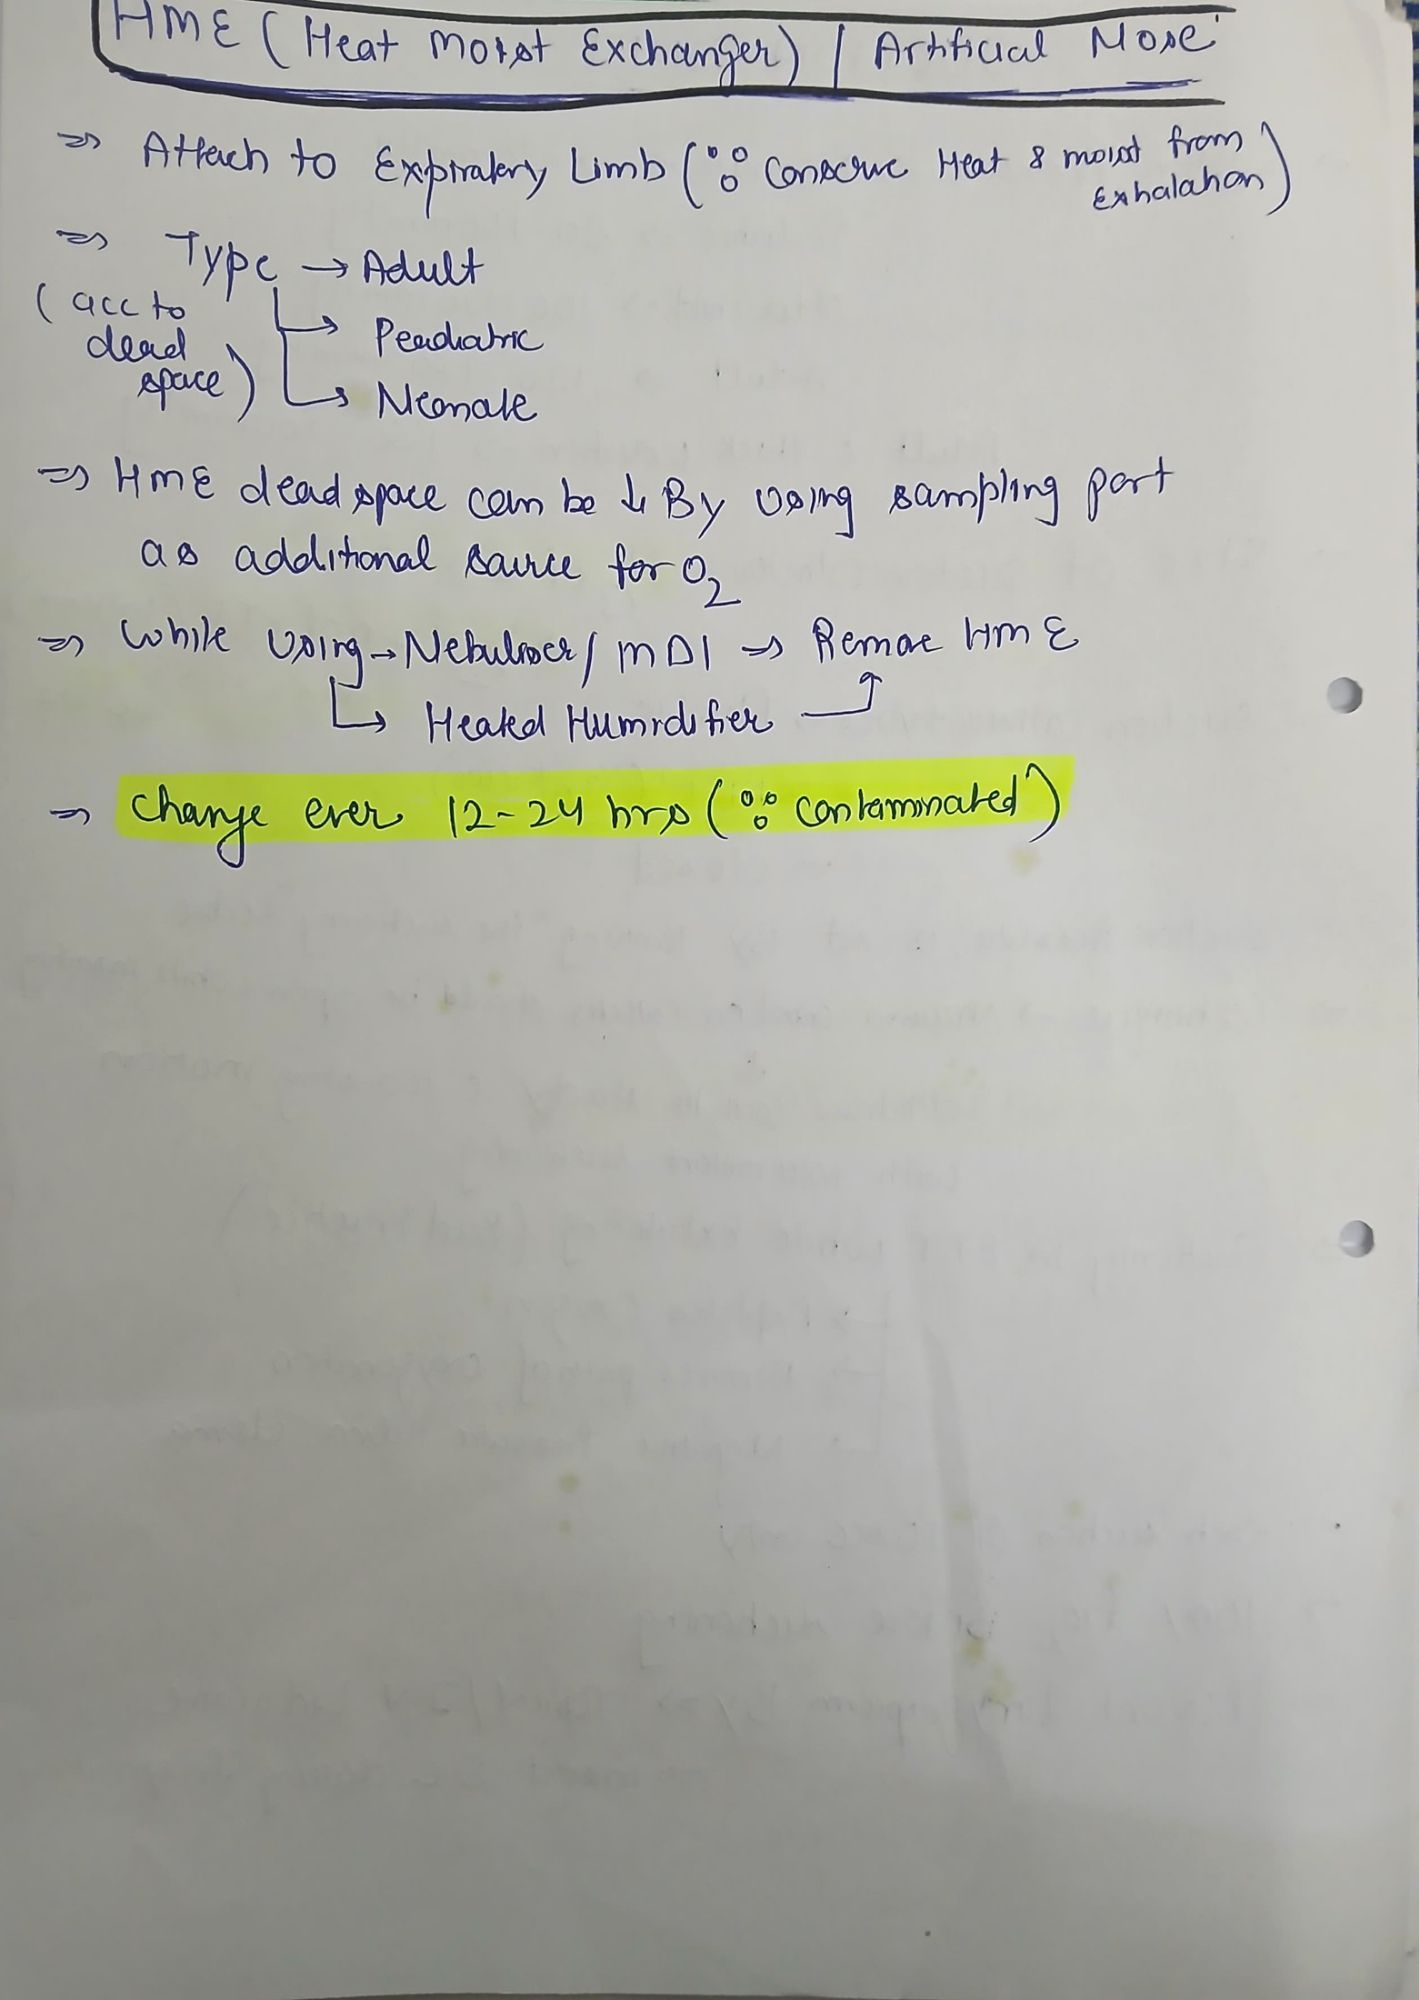 HME (Heat Moist Exchanger) / Artificial Nose
⇒ Attach to Expiratery Limb (∵ Conserve Heat & moist from Exhalation)
⇒ Type → Adult
(acc to dead space)
↳ Peadiatric
↳ Neonate
⇒ HME dead space can be ↓ By using sampling port
as additional source for O2
⇒ While Using → Nebuliser / MDI ⇒ Remove HME
↳ Heated Humidifier
⇒ Change ever 12-24 hrs (∵ contaminated)